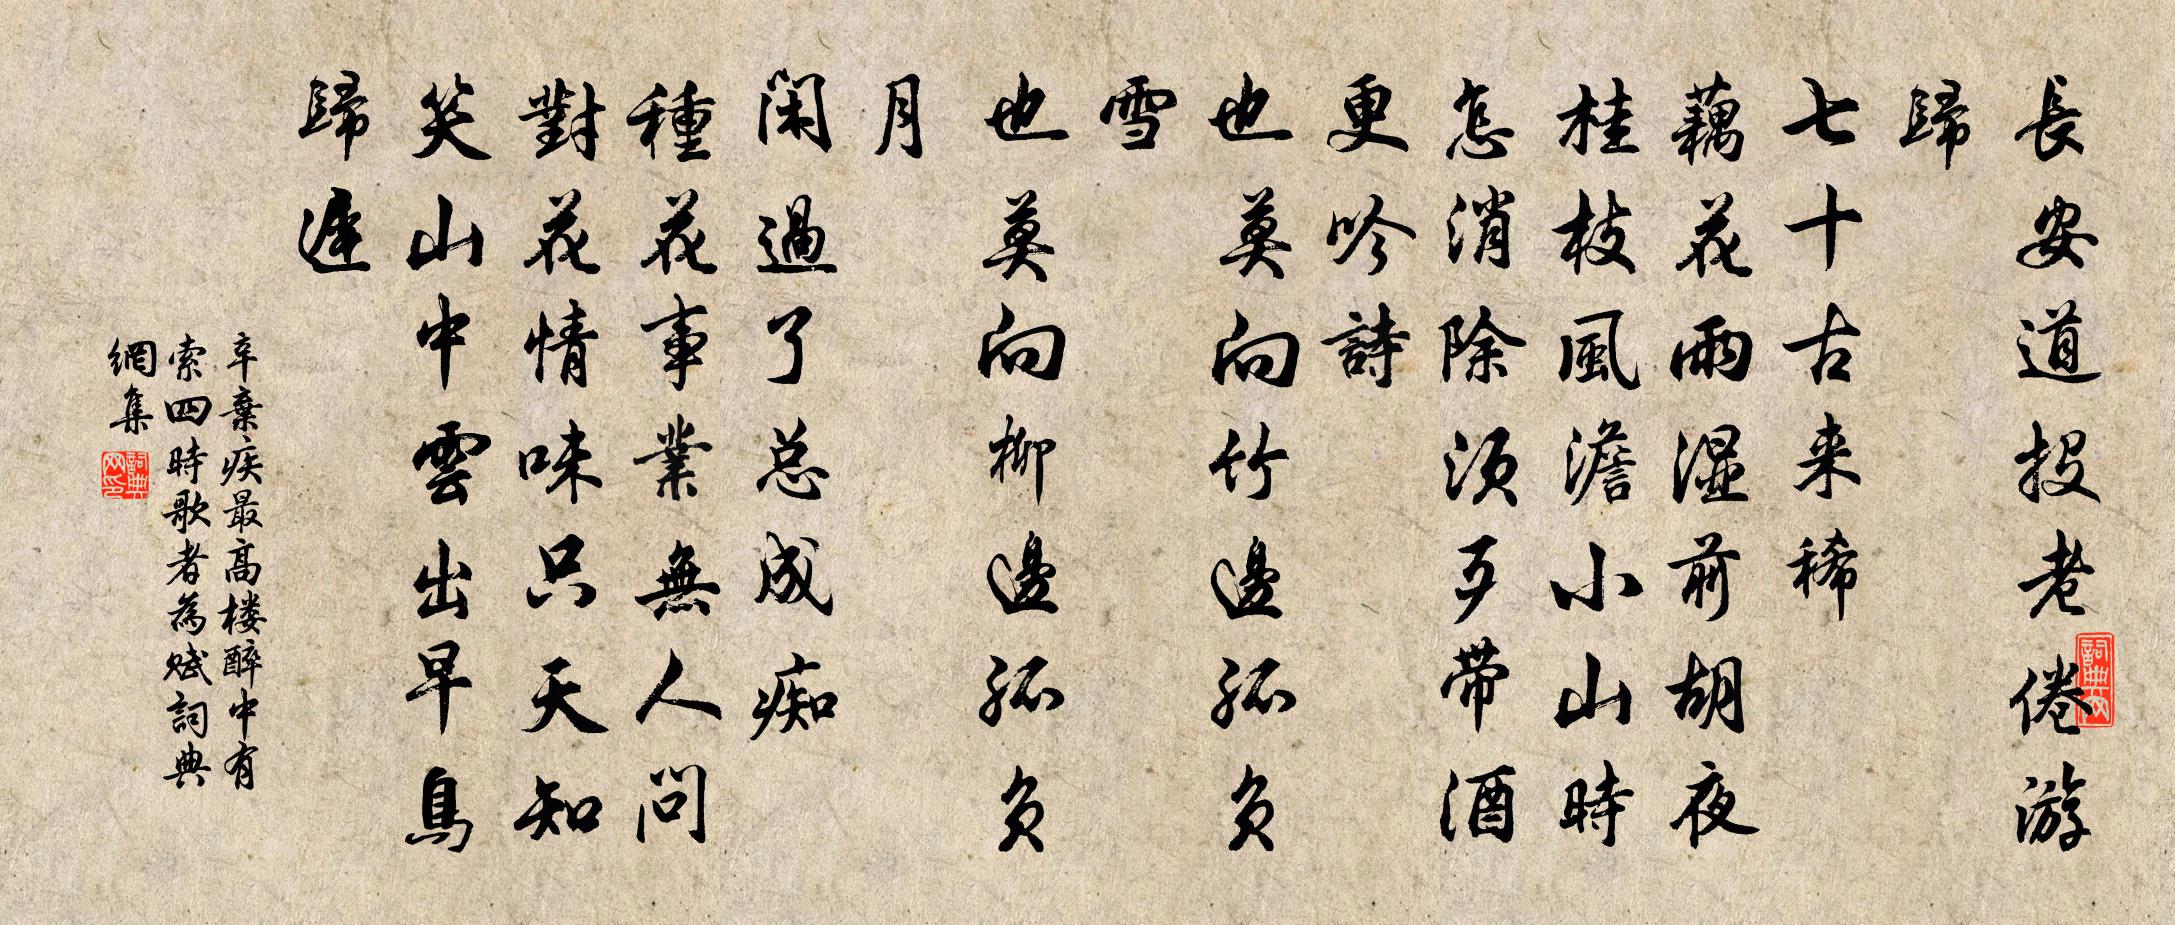 長安道投老倦游
歸
七十古来稀
藕花雨濕前胡夜
桂枝風澹小山時
怎消除須歹帶酒
更吟詩
也莫向竹邊孤负
雪
也莫向柳邊孤负
月
閑過了总成痴
種花事業無人問
對花情味只天知
笑山中雲出早鳥
歸遲
辛棄疾最高楼醉中有
索四時歌者為赋詞典
網集
詞典网
詞典网印